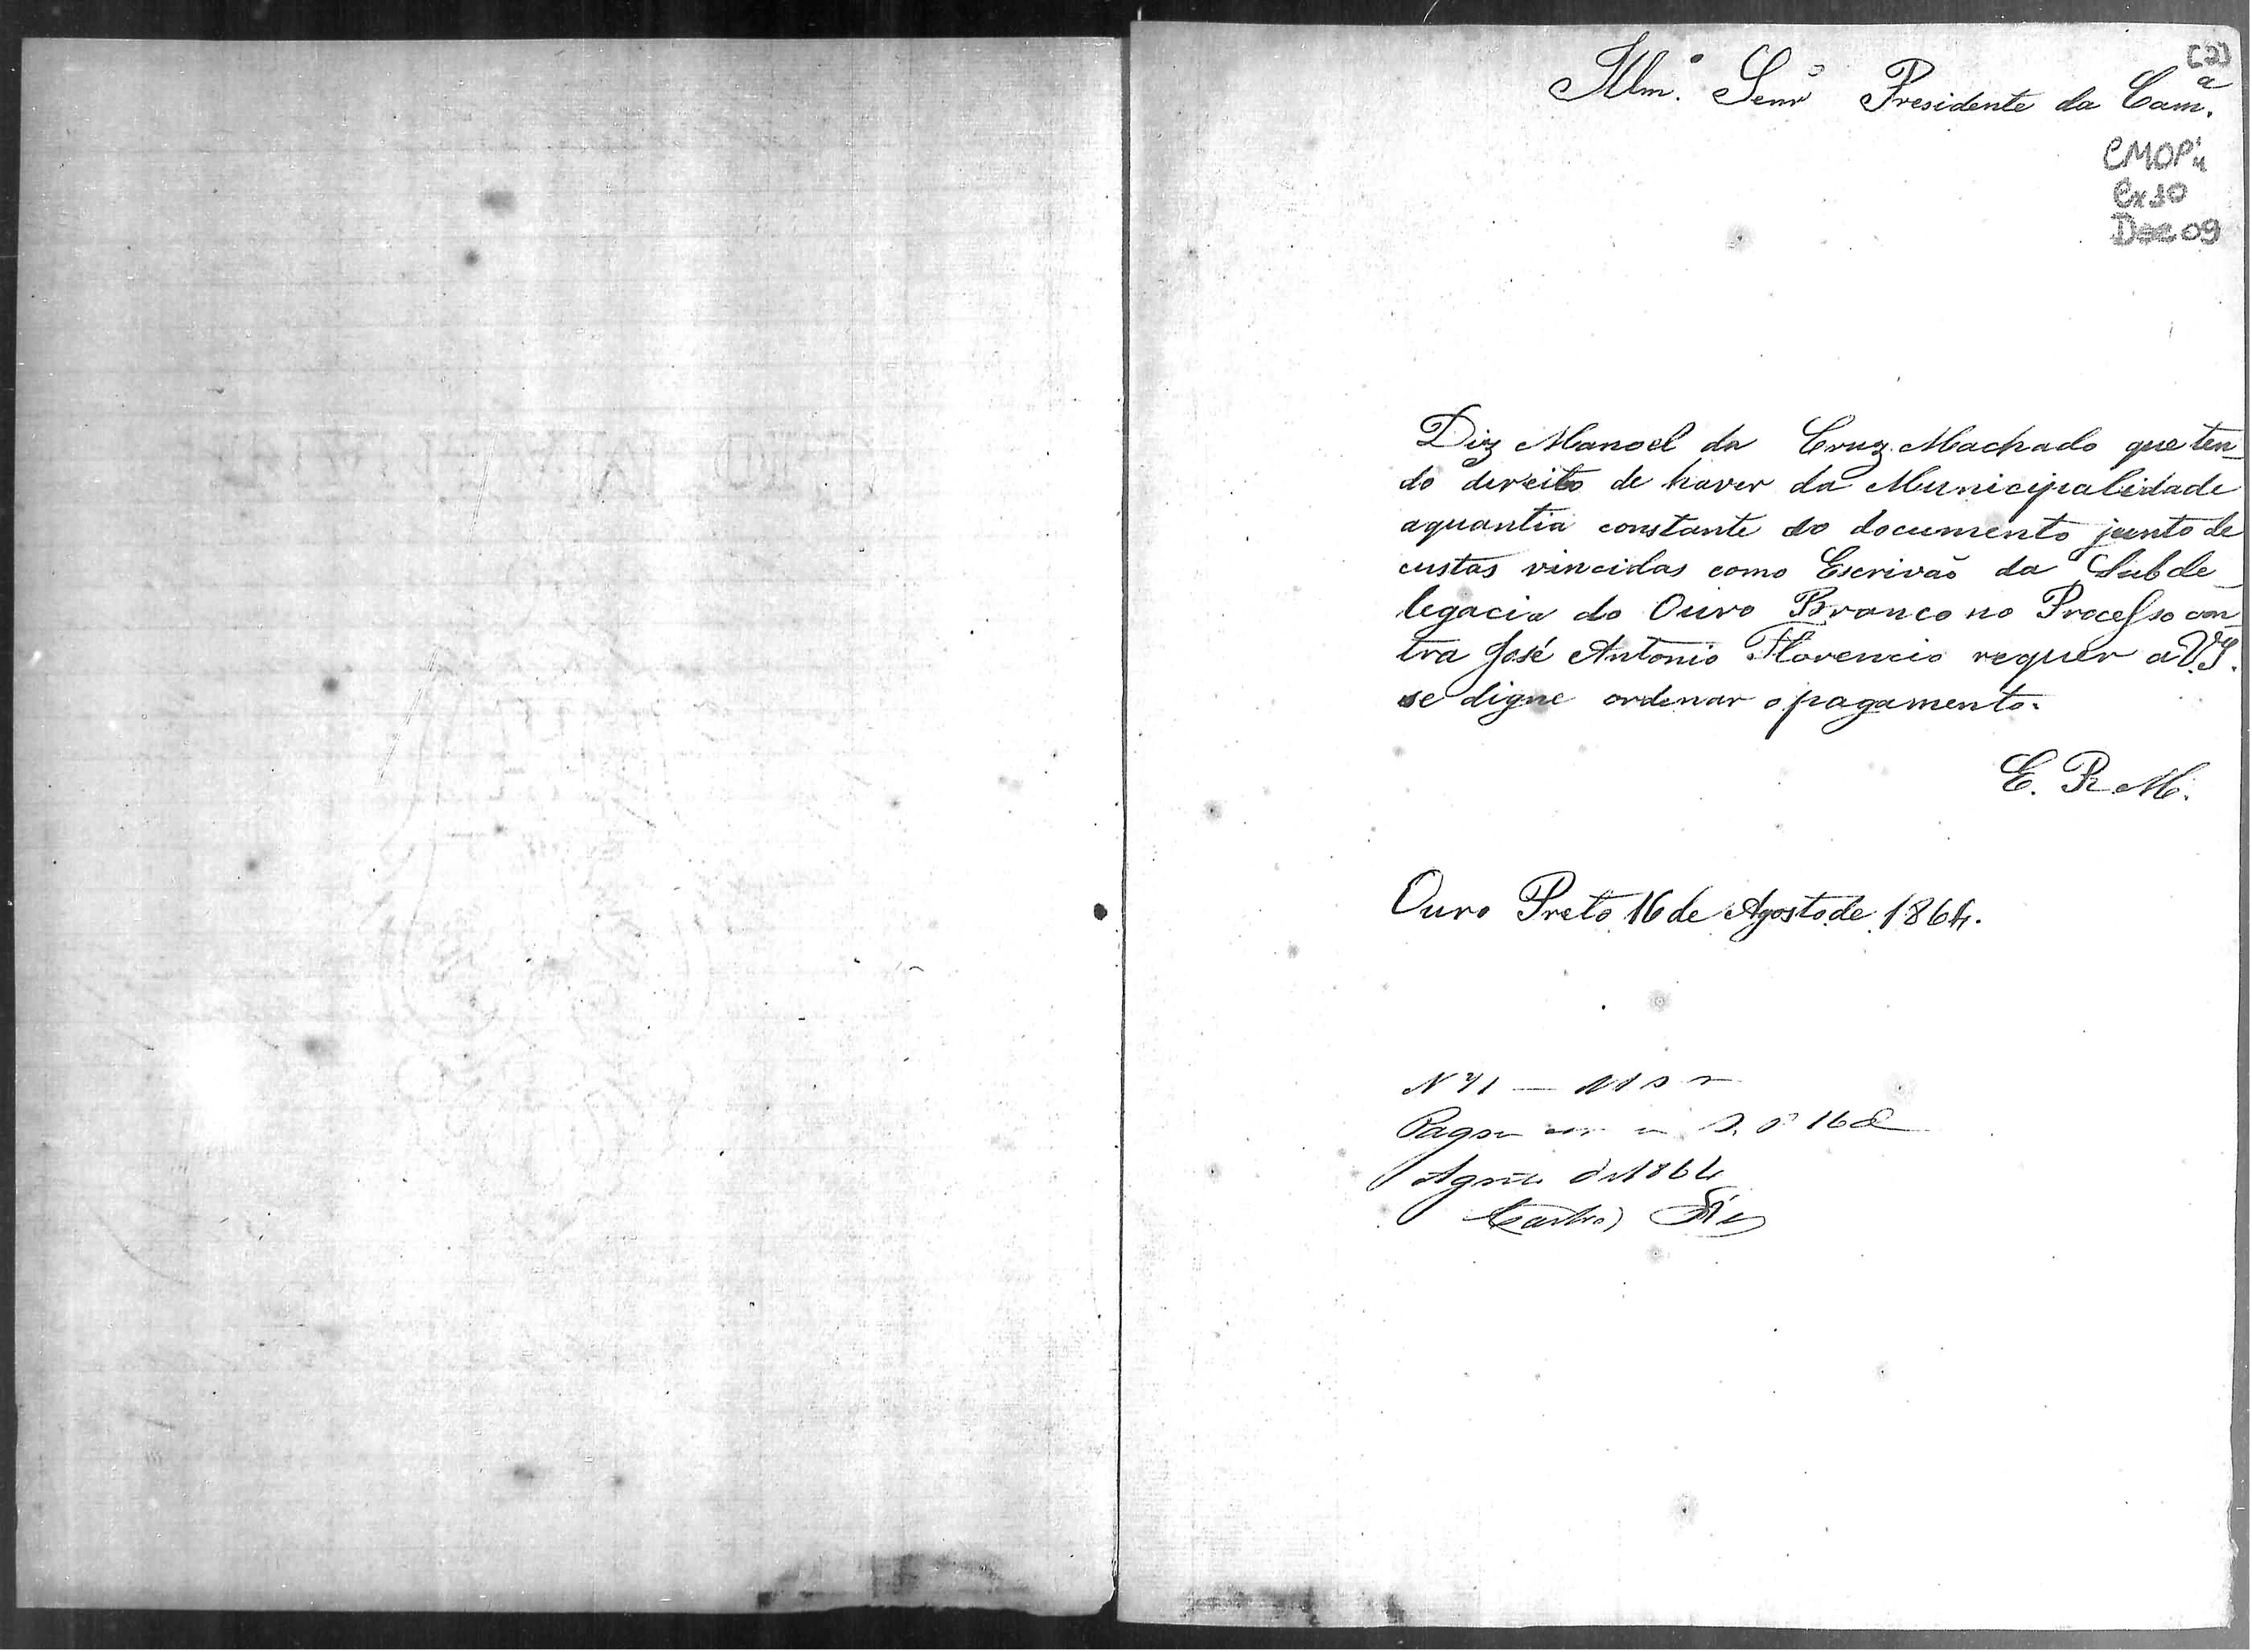 (2)
Illm.º Senr.º Presidente da Cam.ª
CMOP
Cx 10
Doc 09
Diz Manoel da Cruz Machado que ten-
do direito de haver da Municipalidade
aquantia constante do documento junto de
custas vincidas como Escrivaõ da Subde-
legacia do Ouro Branco no Processo con-
tra José Antonio Florencio requer a V.S.
se digne ordenar o pagamento.
E. R. M.
Ouro Preto 16 de Agosto de 1864.
N
Pagou 16 de
Agosto de 1864
Castro